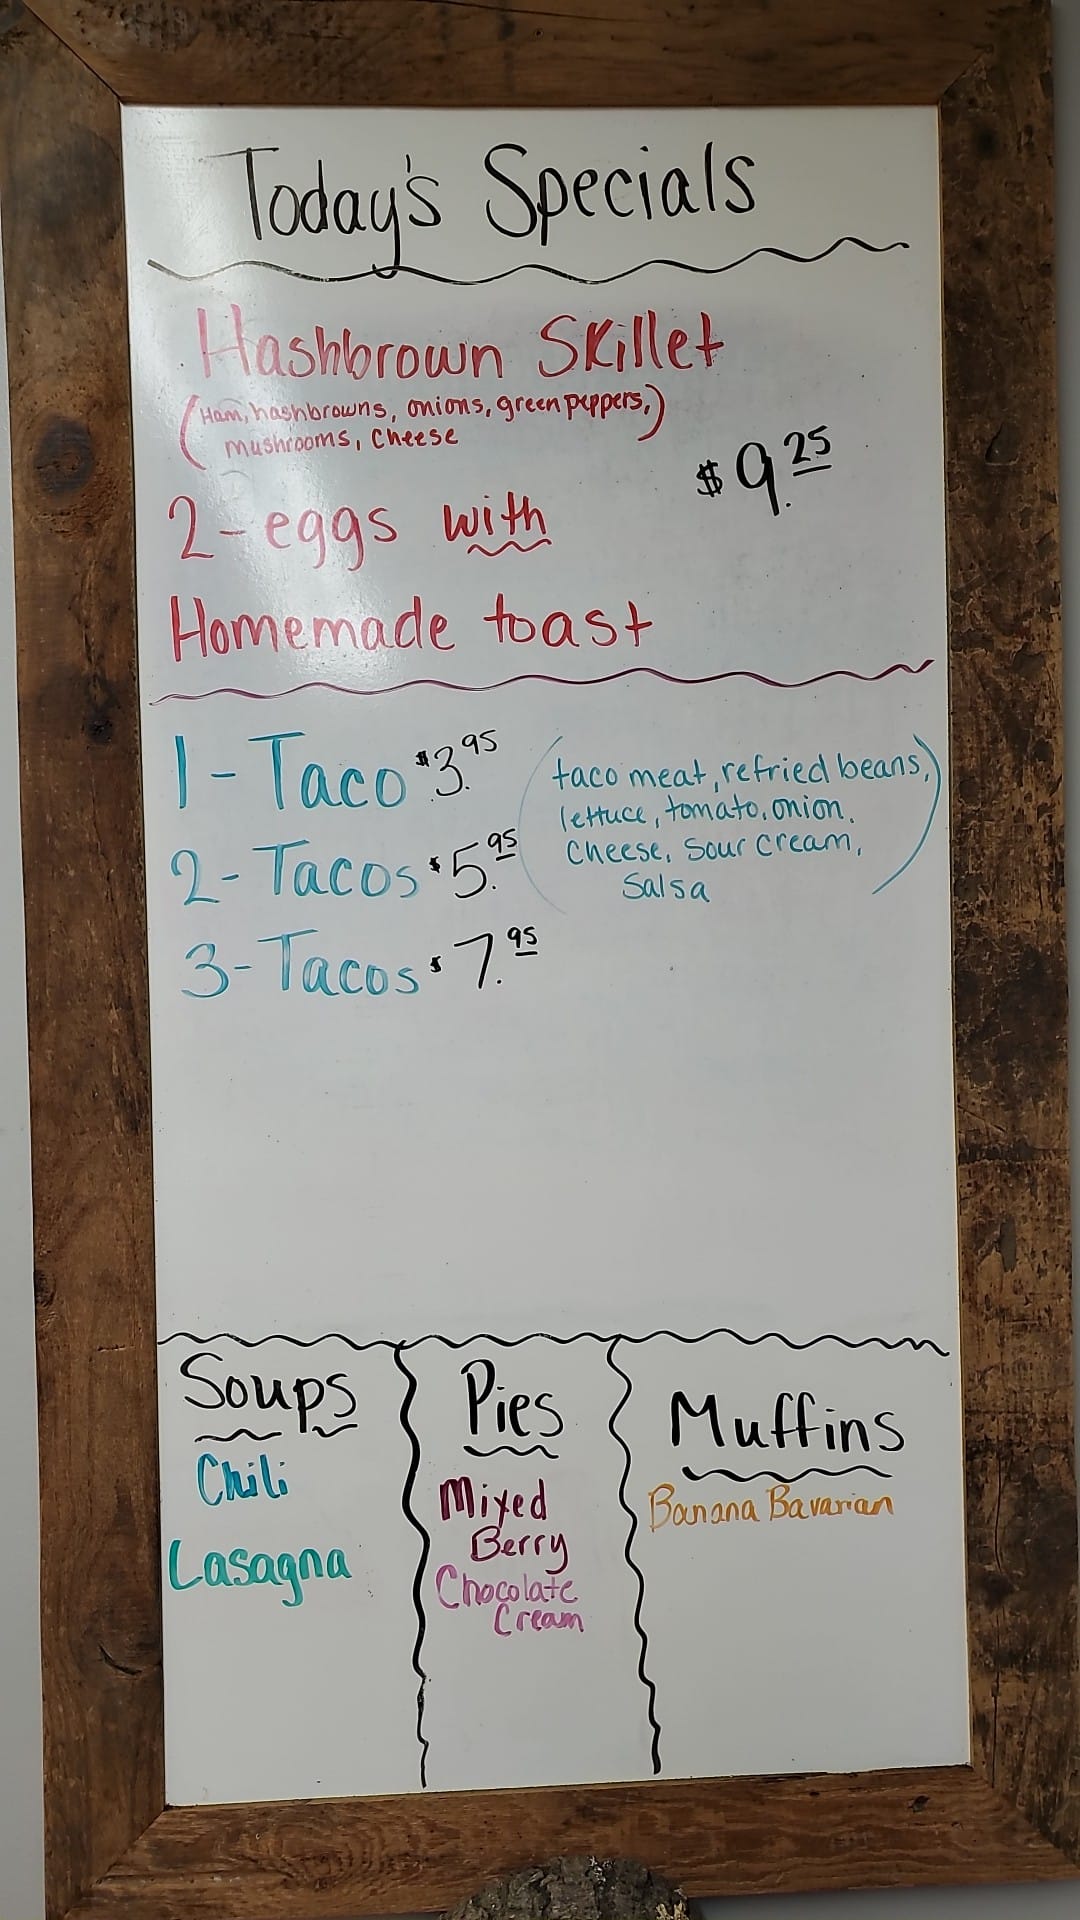 Today's Specials
Hashbrown Skillet
(Ham, hashbrowns, onions, green peppers,)
mushrooms, cheese
$9.25
2-eggs with
Homemade toast
1-Taco $3.95
(taco meat, refried beans,)
lettuce, tomato, onion,
cheese, sour cream,
salsa
2-Tacos $5.95
3-Tacos $7.95
Soups
Chili
Lasagna
Pies
Mixed
Berry
Chocolate
Cream
Muffins
Banana Bavarian